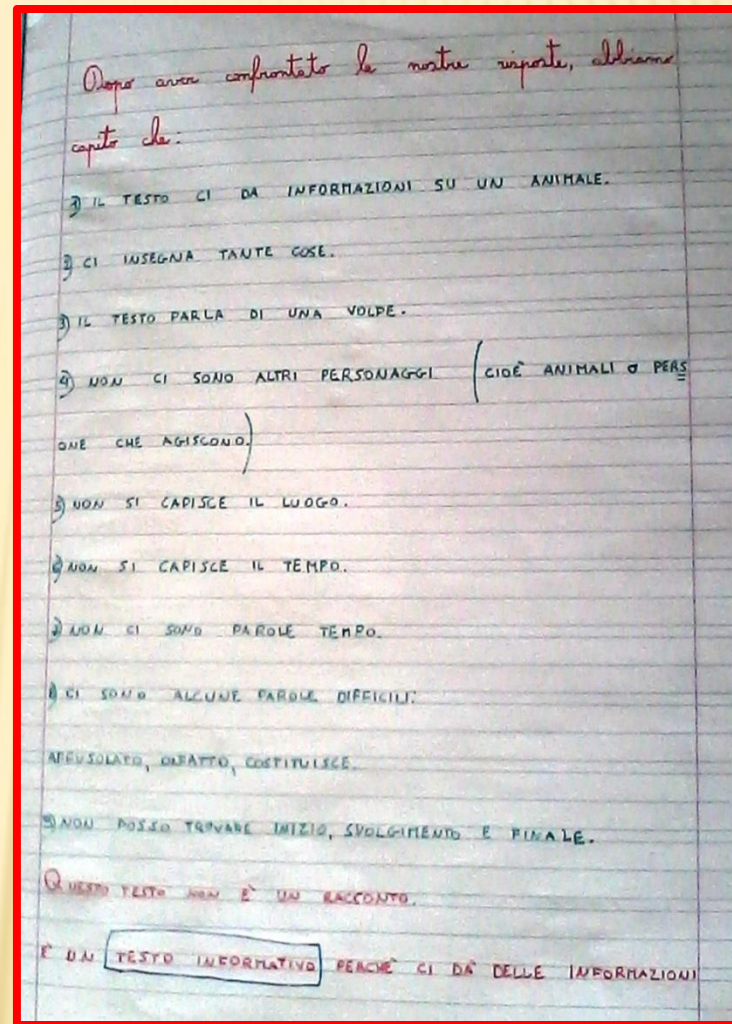 Dopo aver confrontato le nostre risposte, abbiamo
capito che:
1) IL TESTO CI DA INFORMAZIONI SU UN ANIMALE.
2) CI INSEGNA TANTE COSE.
3) IL TESTO PARLA DI UNA VOLPE.
4) NON CI SONO ALTRI PERSONAGGI (CIOÈ ANIMALI O PERS
ONE CHE AGISCONO.)
5) NON SI CAPISCE IL LUOGO.
6) NON SI CAPISCE IL TEMPO.
7) NON CI SONO PAROLE TEMPO.
8) CI SONO ALCUNE PAROLE DIFFICILI:
AFFUSOLATO, OLFATTO, COSTITUISCE.
9) NON POSSO TROVARE INIZIO, SVOLGIMENTO E FINALE.
QUESTO TESTO NON È UN RACCONTO.
È UN TESTO INFORMATIVO PERCHÈ CI DÀ DELLE INFORMAZIONI